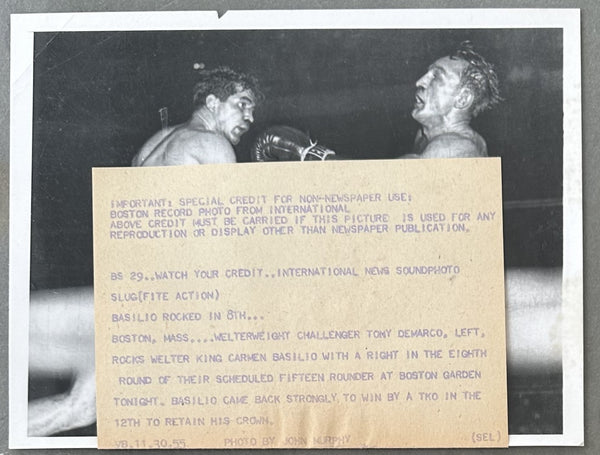 IMPORTANT: SPECIAL CREDIT FOR NON-NEWSPAPER USE:
BOSTON RECORD PHOTO FROM INTERNATIONAL
ABOVE CREDIT MUST BE CARRIED IF THIS PICTURE IS USED FOR ANY
REPRODUCTION OR DISPLAY OTHER THAN NEWSPAPER PUBLICATION.
BS 29..WATCH YOUR CREDIT..INTERNATIONAL NEWS SOUNDPHOTO
SLUG(FITE ACTION)
BASILIO ROCKED IN 8TH...
BOSTON, MASS....WELTERWEIGHT CHALLENGER TONY DEMARCO, LEFT,
ROCKS WELTER KING CARMEN BASILIO WITH A RIGHT IN THE EIGHTH
ROUND OF THEIR SCHEDULED FIFTEEN ROUNDER AT BOSTON GARDEN
TONIGHT. BASILIO CAME BACK STRONGLY TO WIN BY A TKO IN THE
12TH TO RETAIN HIS CROWN.
VB.11.30.55 PHOTO BY JOHN MURPHY (SEL)